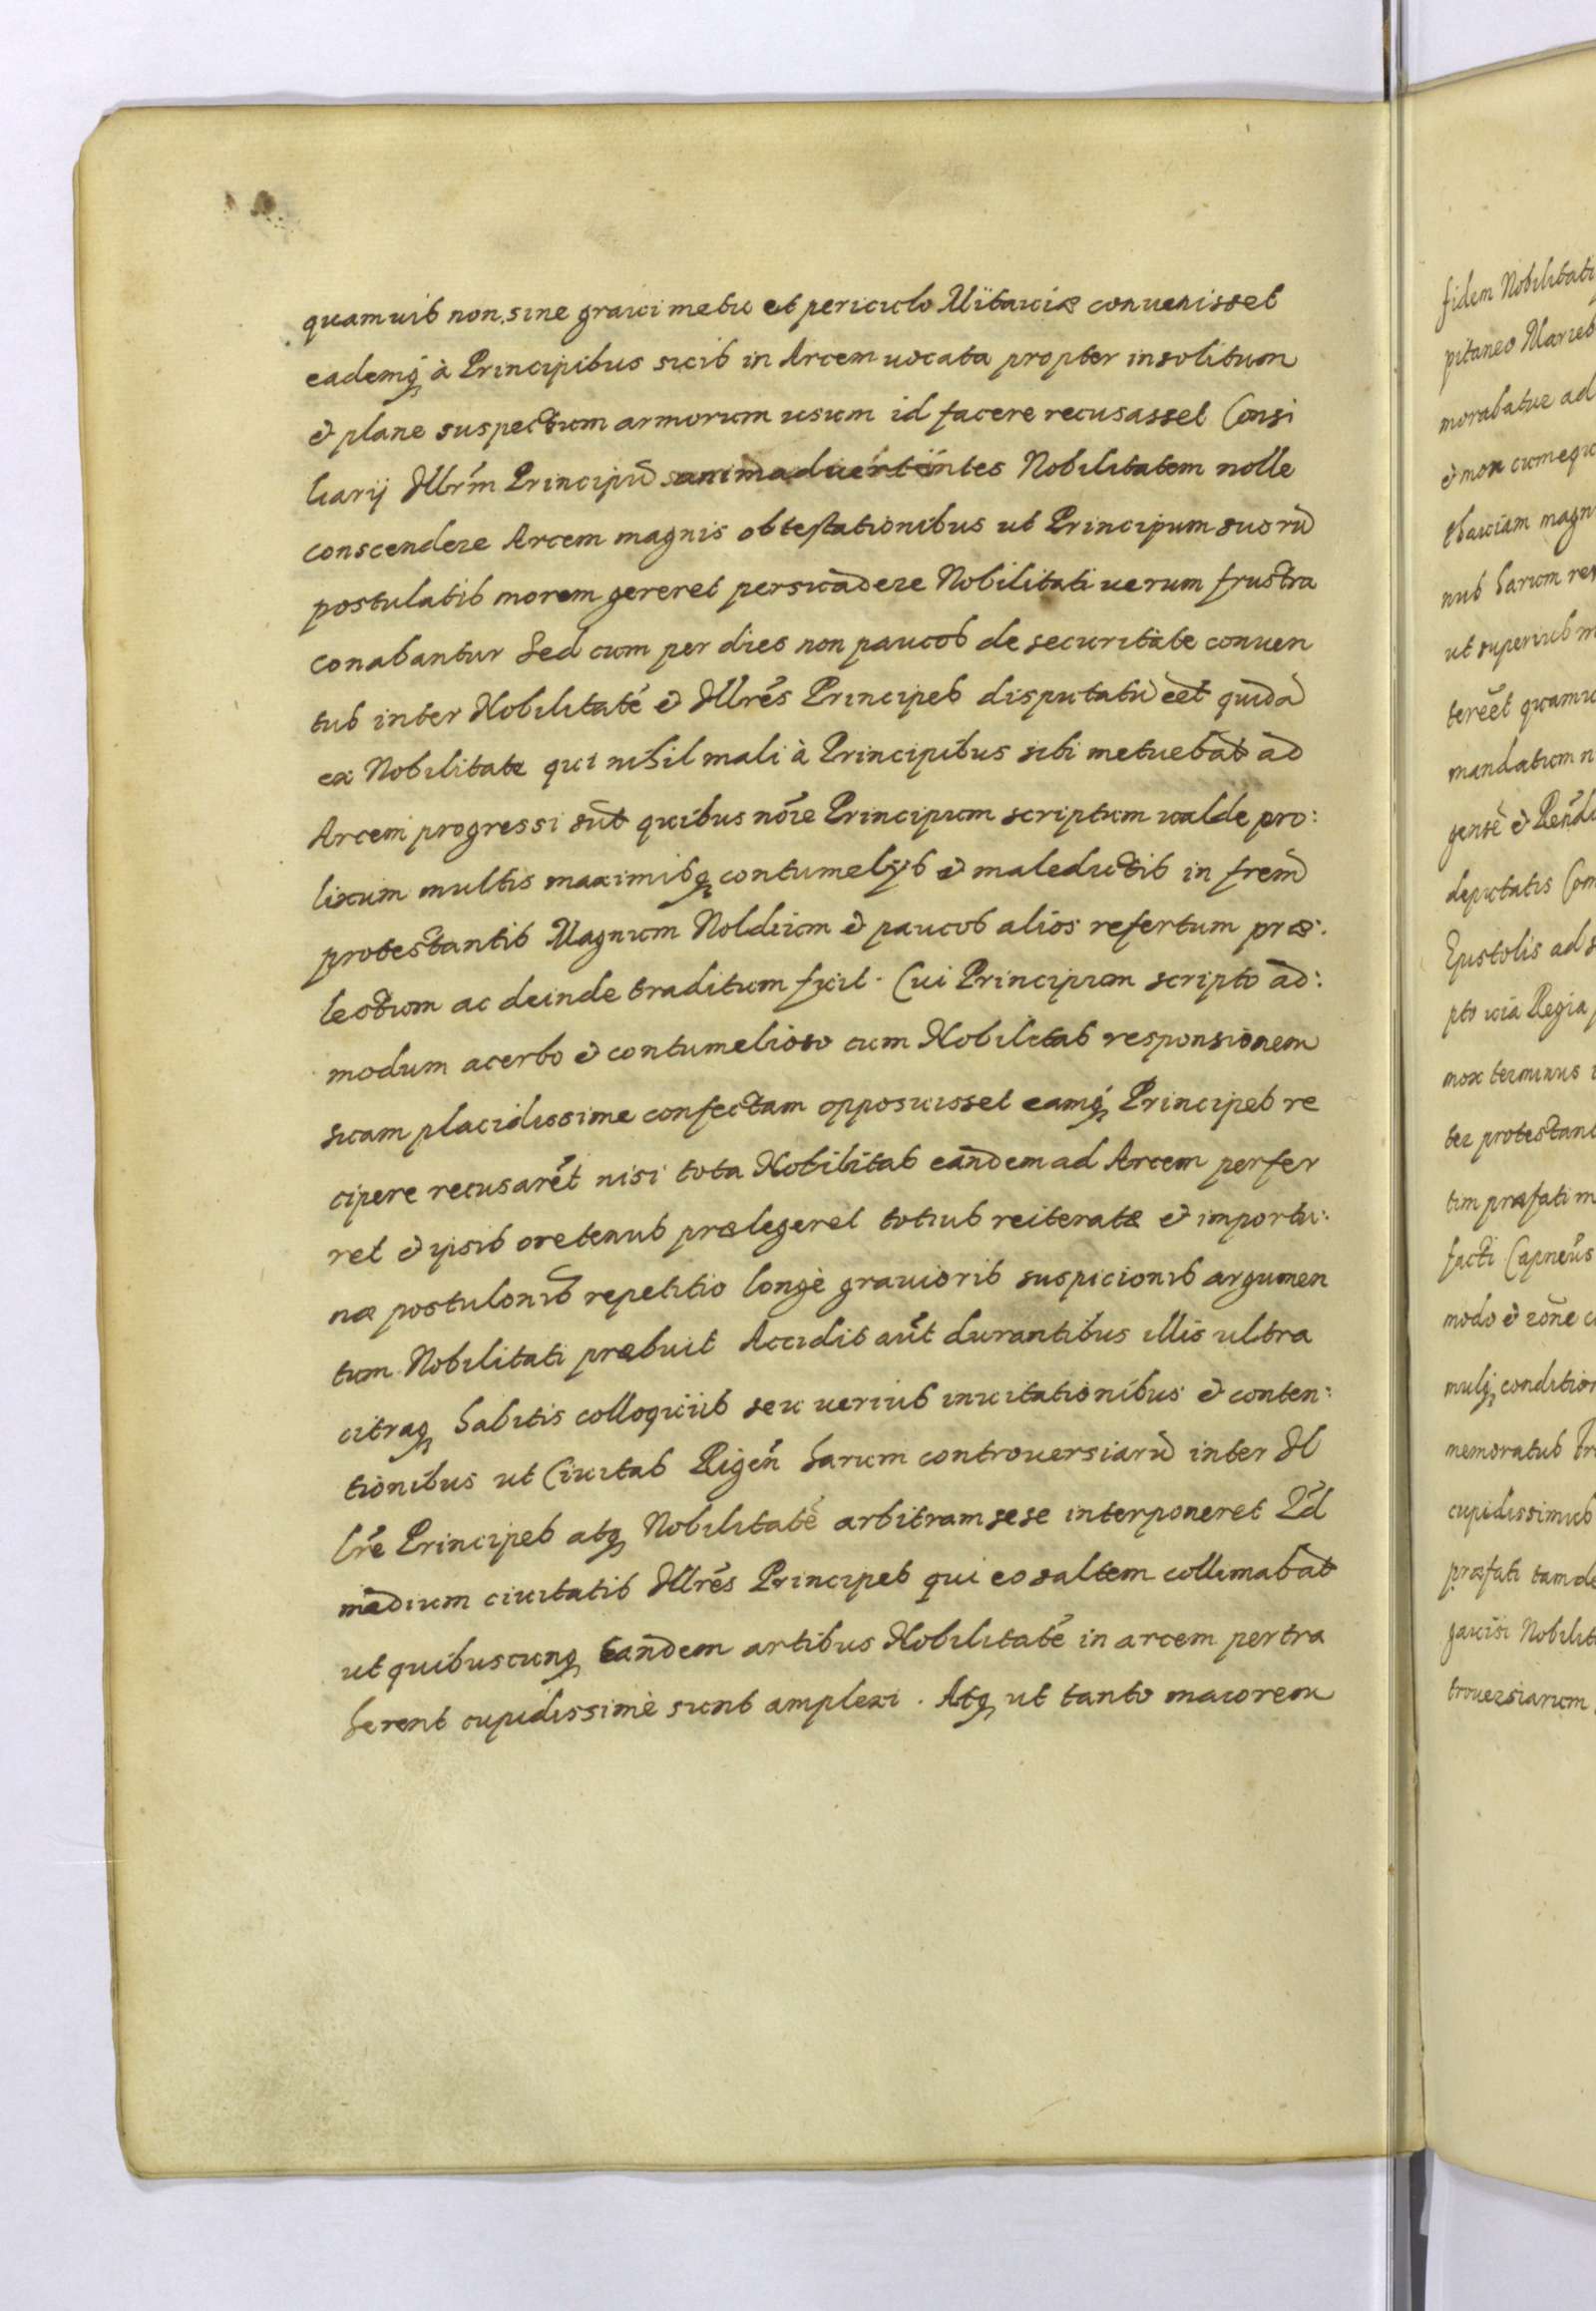 quamuis non sine graui metu et periculo Mitauiæ conuenisset
eademq; à Principibus suis in Arcem uocata propter insolitum
& plane suspectum armorum usum id facere recusasset Consi
liarij Illrm̃ Principũ animaduertentes Nobilitatem nolle
conscendere Arcem magnis obtestationibus ut Principum suorũ
postulatis morem gereret persuadere Nobilitati uerum frustra
conabantur Sed cum per dies non paucos de securitate conuen
tus inter Nobilitatẽ & Illrẽs Principes disputatũ eẽt quidã
ex Nobilitate qui nihil mali à Principibus sibi metuebãt ad
Arcem progressi sũt quibus nõie Principum scriptum ualde pro:
lixum multis maximisq; contumelijs & maledictis in frem̃
protestantis Magnum Noldium & paucos alios refertum præ:
lectum ac deinde traditum fuit. Cui Principum scripto ad:
modum acerbo & contumelioso cum Nobilitas responsionem
suam placidissime confectam opposuisset eamq; Principes re
cipere recusarẽt nisi tota Nobilitas eandem ad Arcem perfer
ret & ipsis oretenus prælegeret totius reiteratæ & importu:
næ postulonis̃ repetitio longè grauioris suspicionis argumen
tum Nobilitati præbuit Accidit aũt durantibus illis ultra
citraq; habitis colloquiis seu uerius inuitationibus & conten:
tionibus ut Ciuitas Rigeñ harum controuersiarũ inter Il
lrẽ Principes atq; Nobilitatẽ arbitram sese interponeret Id
medium ciuitatis Illrẽs Principes qui eo saltem collimabãt
ut quibuscunq; tandem artibus Nobilitatẽ in arcem pertra
herent cupidissimè sunt amplexi. Atq; ut tanto maiorem
fidem Nobilitati
pitaneo Marieb
morabatur ad
& mox cumequ
thauiam magn
nus harum re
ut superius m
terẽet quamu
mandatum n
gensẽ & Rend
deputatis Com
Epistolis ad s
pto uia Regia
mox terminus
ter protestant
tim præfati m
facti Capneũs
modo & rõne c
mulq; condition
memoratus Pr
cupidissimus
præfati tam de
gauisi Nobilit
trouersiarum